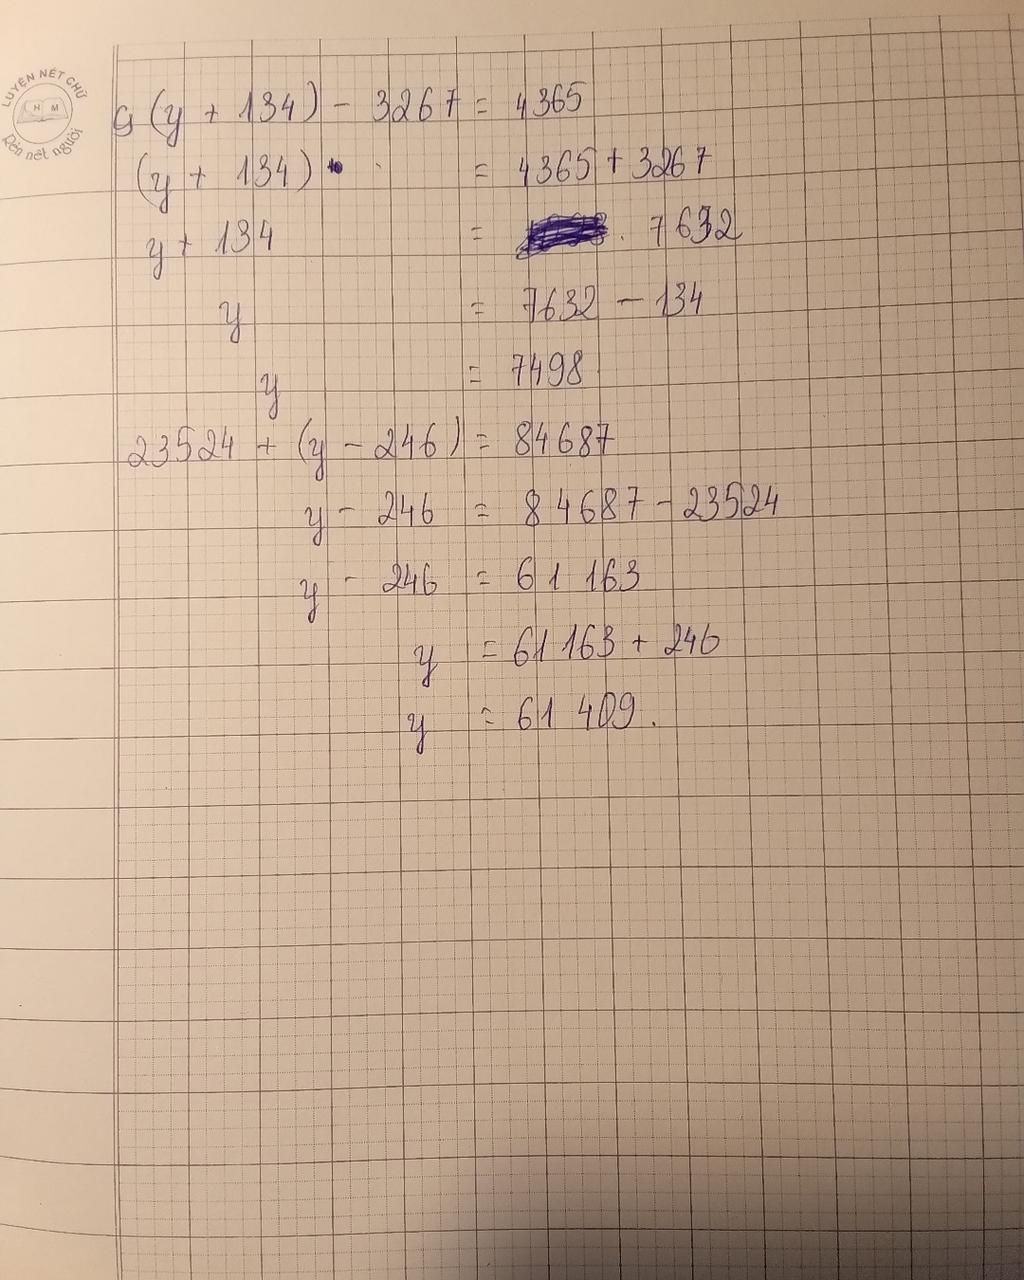 LUYỆN NÉT CHỮ
H M
Rèn nết người
(y + 134) - 3267 = 4365
(y + 134) = 4365 + 3267
y + 134 = 7632
y = 7632 - 134
y = 7498
23524 + (y - 246) = 84687
y - 246 = 84687 - 23524
y - 246 = 61 163
y = 61 163 + 246
y = 61 409.